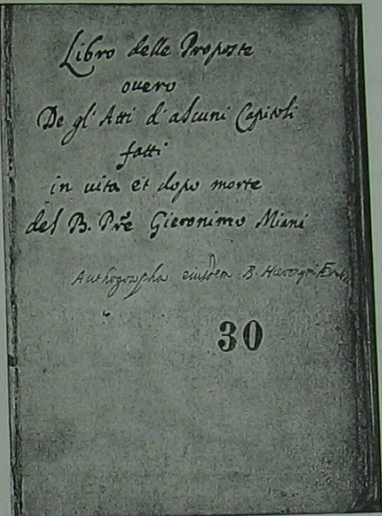 Libro delle Proposte
ouero
De gl' Atti d'alcuni Capitoli
fatti
in uita et dopo morte
del B. Prẽ Gieronimo Miani
Authographa eiusdem B. Hieronymi
30